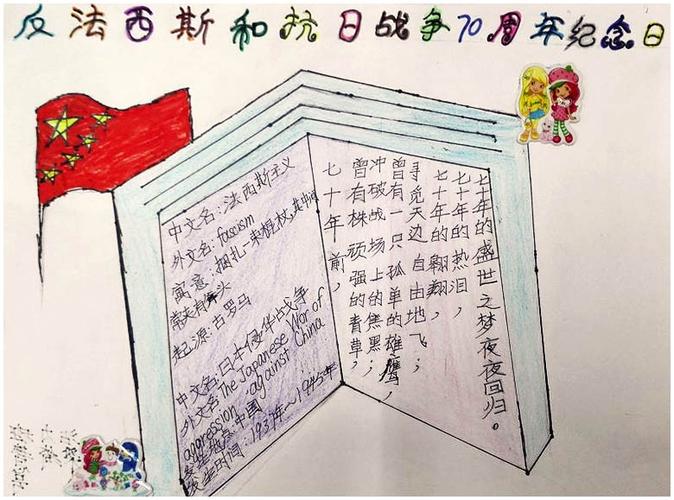 反法西斯和抗日战争70周年纪念日
中文名:法西斯主义
外文名:fascism
寓意:捆扎一束棍杖,其中间
夹有斧头
起源:古罗马
中文名:日本侵华战争
外文名:The Japanese War of
aggression against China
发生地点:中国
发生时间:1937年~1945年
七十年前,
曾有株顽强的青草,
冲破战场上的焦黑;
曾有一只孤单的雄鹰,
寻觅天边自由地飞;
七十年的翱翔,
七十年的热泪,
七年的盛世之梦夜夜回归。